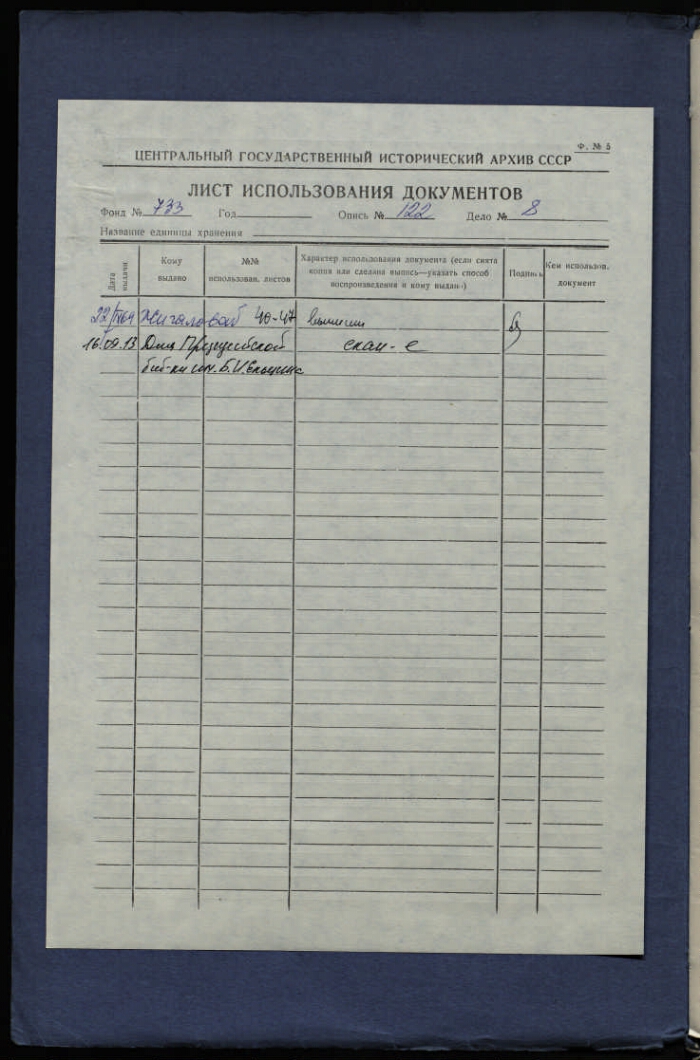 Ф. № 5
ЦЕНТРАЛЬНЫЙ ГОСУДАРСТВЕННЫЙ ИСТОРИЧЕСКИЙ АРХИВ СССР
ЛИСТ ИСПОЛЬЗОВАНИЯ ДОКУМЕНТОВ
Фонд № 733 Год Опись № 122 Дело № 8
Название единицы хранения
Дата выдачи
Кому выдано
№№ использован. листов
Характер использования документа (если снята копия или сделана выпись—указать способ воспроизведения и кому выдан)
Подпись
Кем использов. документ
Жигаловой 40-47 выписки
16.09.13 Для Президентской скан-е
биб-ки им. Б.Н. Ельцина